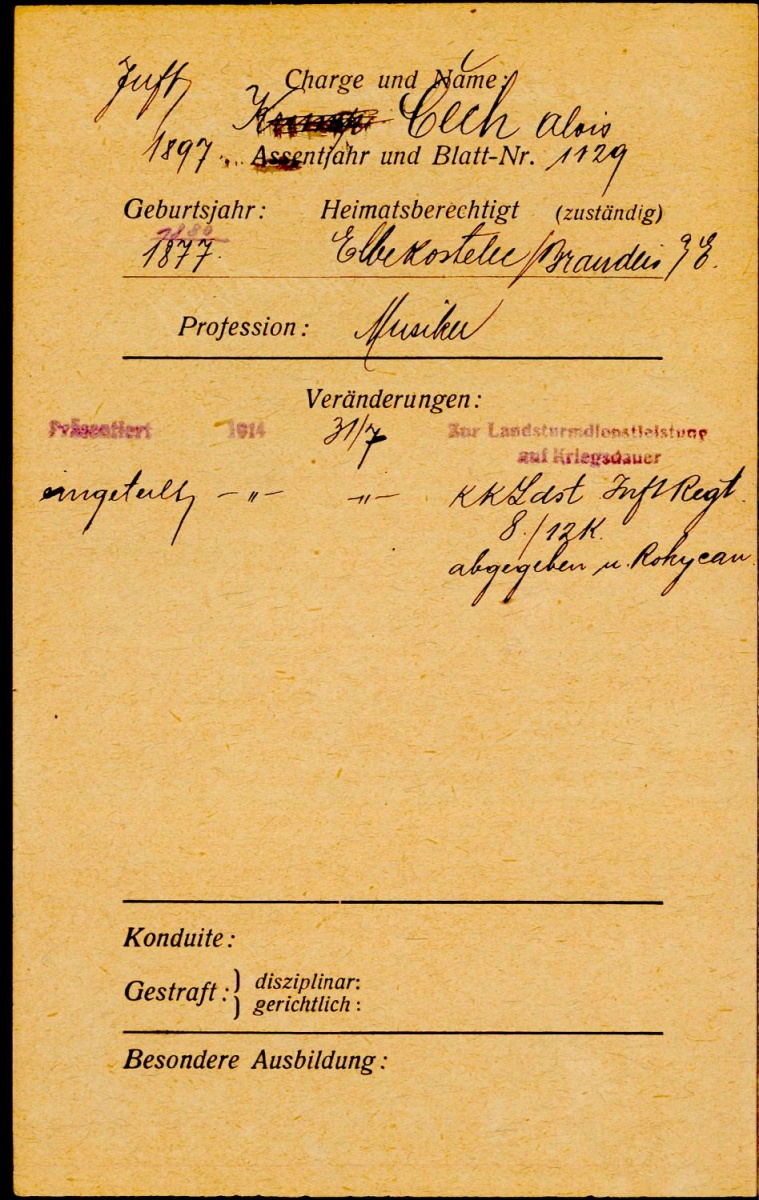 Inft Charge und Name:
Čech Alois
1897 Assentjahr und Blatt-Nr. 1129
Geburtsjahr: Heimatsberechtigt (zuständig)
1877. Elbekostelec/Brandeis a/E.
Profession: Musiker
Veränderungen:
Präsentiert 1914 31/7 Zur Landsturmdienstleistung
auf Kriegsdauer
eingeteilt —"— —"— KK Ldst Inft Regt.
8./12K.
abgegeben n. Rokycan
Konduite:
Gestraft: disziplinar:
gerichtlich:
Besondere Ausbildung: